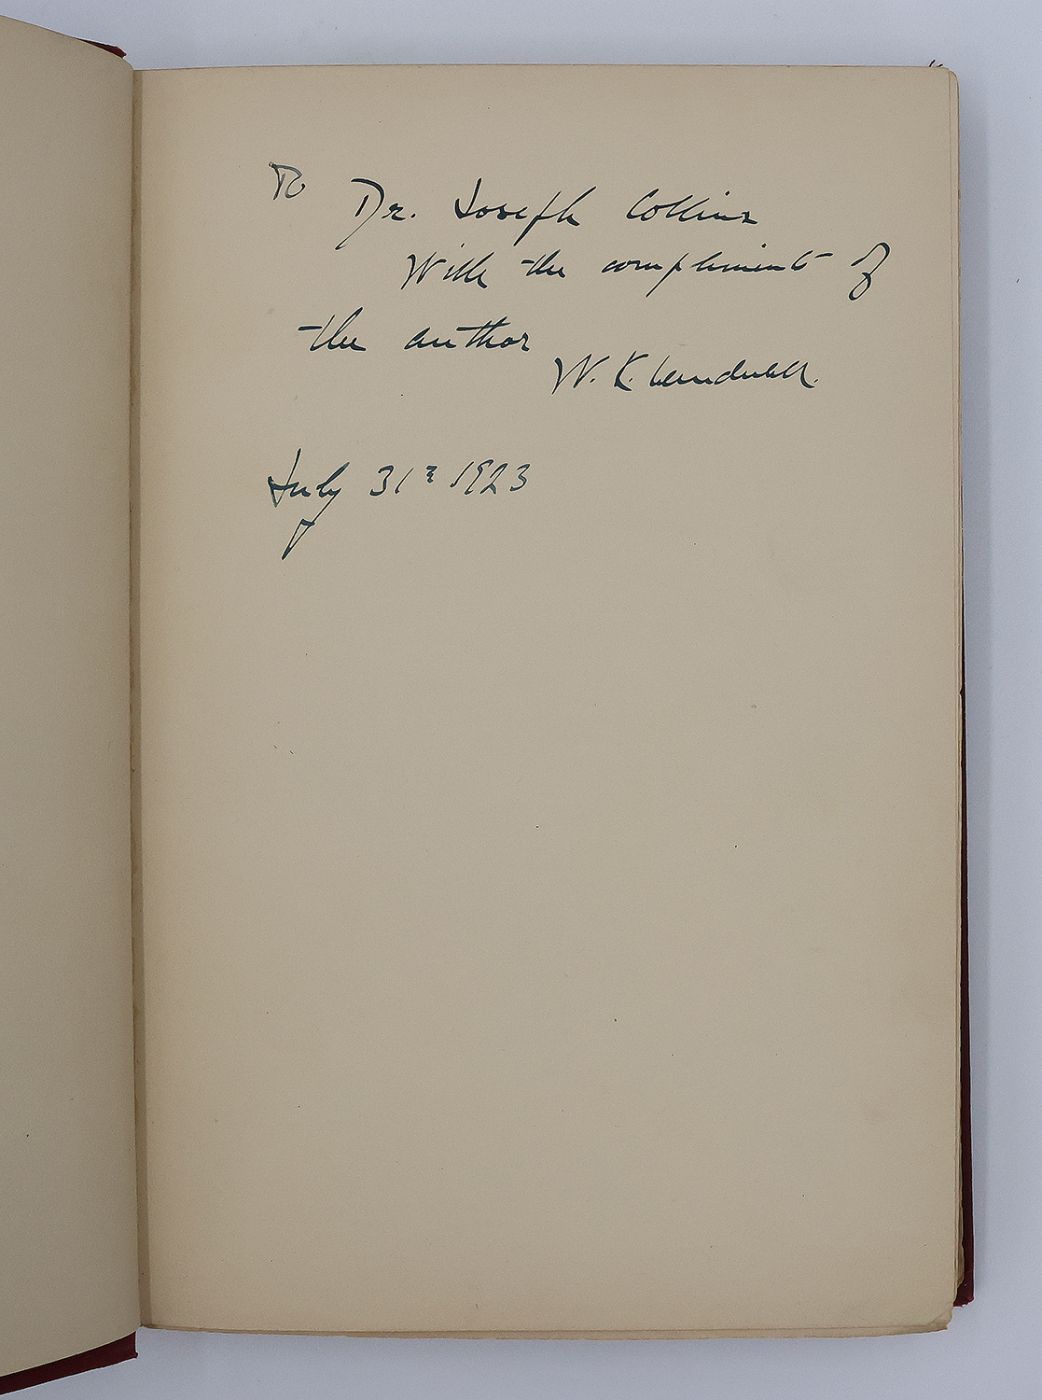 To
Dr. Joseph Collins
With the compliments of
the author
W. K.
July 31st 1923